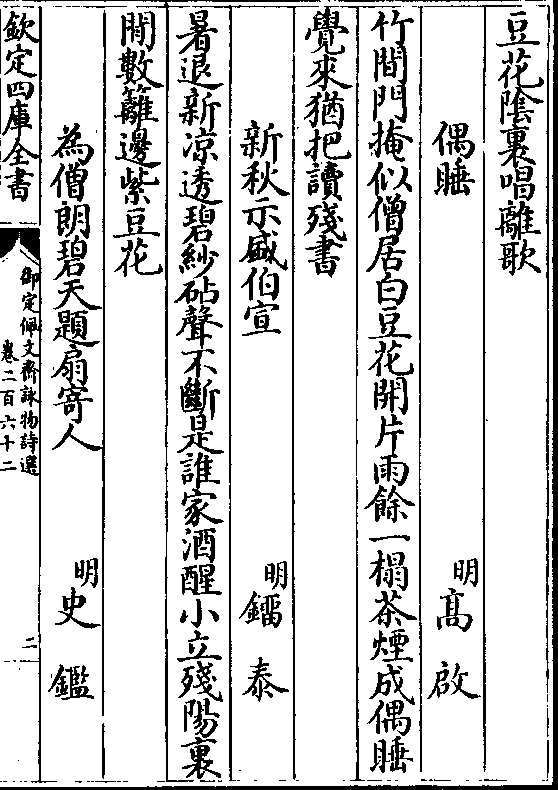 豆花陰裏唱離歌
偶睡
明高啟
竹間門掩似僧居白豆花開片雨餘一榻茶煙成偶睡
覺來猶把讀殘書
新秋示盛伯宣
明鐂泰
暑退新凉透碧紗砧聲不斷是誰家酒醒小立殘陽裏
閒數籬邊紫豆花
為僧朗碧天題扇寄人
明史鑑
欽定四庫全書
御定佩文齋詠物詩選
卷二百六十二
二